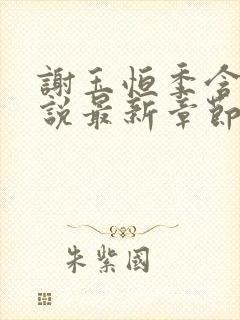 謝玉恒季含
說最新章節
朱紫國